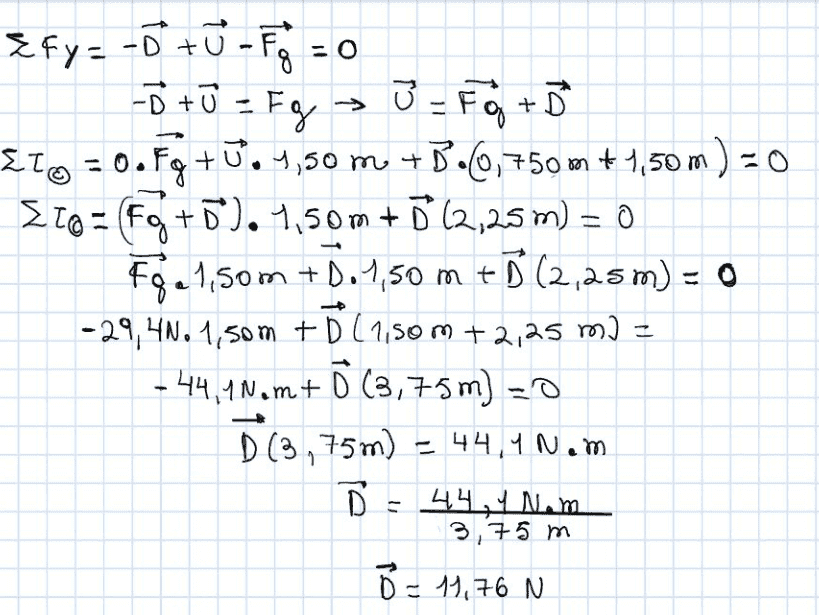 ΣFy = -D⃗ + U⃗ - F⃗g = 0
-D⃗ + U⃗ = Fg → U⃗ = F⃗g + D⃗
Στ© = 0 . F⃗g + U⃗ . 1,50 m + D⃗ . (0,750m + 1,50m) = 0
Στ© = (F⃗g + D⃗) . 1,50m + D⃗ (2,25m) = 0
F⃗g . 1,50m + D⃗ . 1,50 m + D⃗ (2,25m) = 0
-29,4N . 1,50m + D⃗ (1,50m + 2,25 m) =
-44,1N.m + D⃗ (3,75m) = 0
D⃗ (3,75m) = 44,1 N.m
D⃗ = 44,1 N.m / 3,75 m
D⃗ = 11,76 N